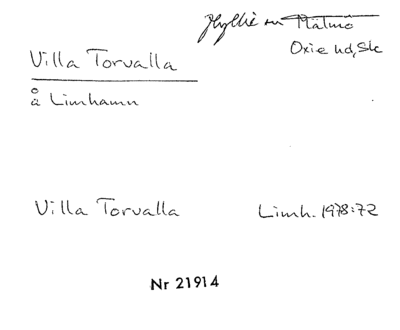 Hyllie sn Malmö
Oxie hd, Sk
Villa Torvalla
å Limhamn
Villa Torvalla Limh. 1978:72
Nr 21914